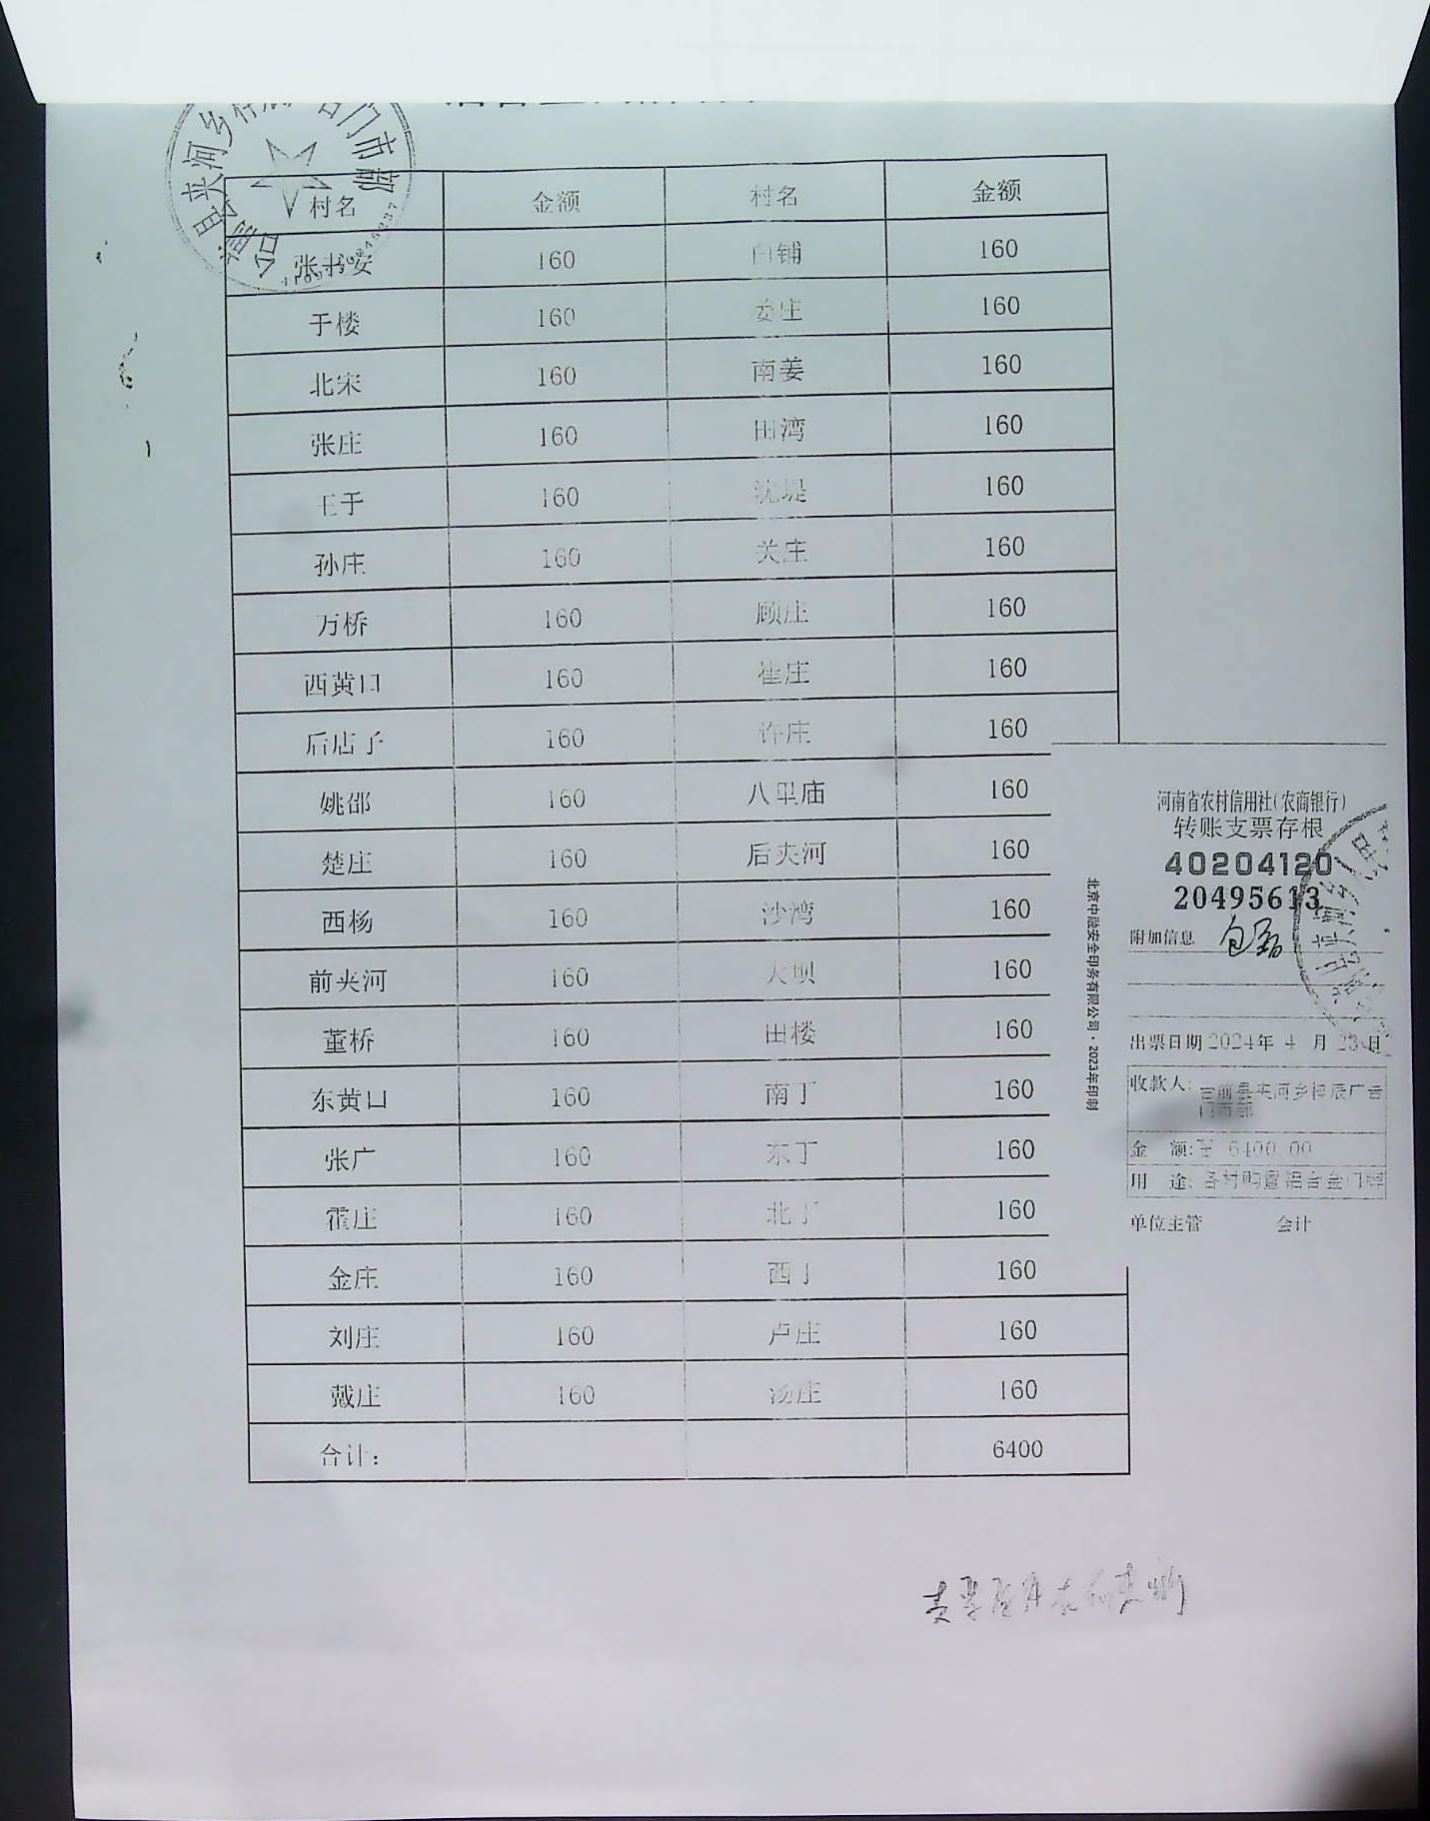 村名 金额 村名 金额
张书安 160 白铺 160
于楼 160 娄庄 160
北宋 160 南姜 160
张庄 160 田湾 160
王于 160 沈堤 160
孙庄 160 关庄 160
万桥 160 顾庄 160
西黄口 160 崔庄 160
后店子 160 许庄 160
姚邵 160 八里庙 160
楚庄 160 后夹河 160
西杨 160 沙湾 160
前夹河 160 大坝 160
董桥 160 田楼 160
东黄口 160 南丁 160
张广 160 东丁 160
霍庄 160 北丁 160
金庄 160 西丁 160
刘庄 160 卢庄 160
戴庄 160 汤庄 160
合计： 6400
河南省农村信用社(农商银行)
转账支票存根
40204120
20495613
附加信息
出票日期 2024年 4 月 23 日
收款人: 台前县夹河乡梓辰广告
门市部
金 额:¥ 6400.00
用 途: 各村购置铝合金门牌
单位主管 会计
北京中融安全印务有限公司·2023年印制